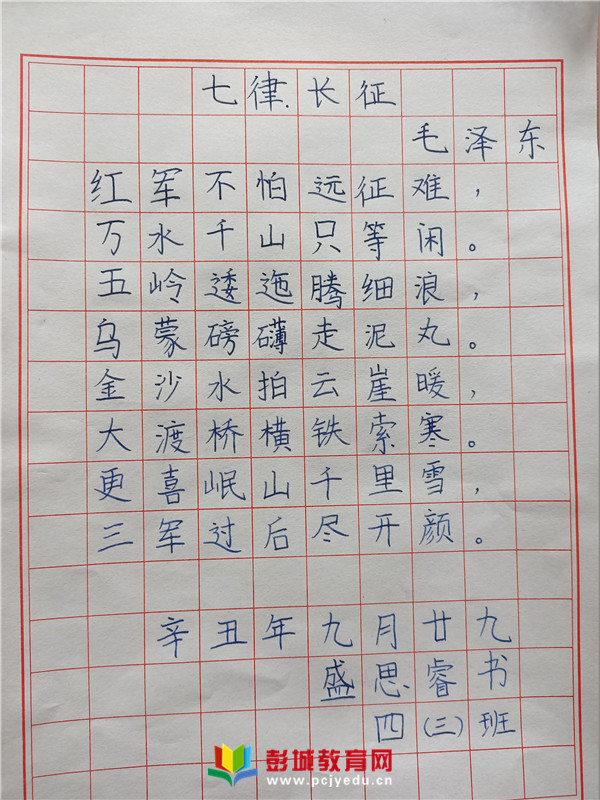 七律.长征
毛泽东
红军不怕远征难，
万水千山只等闲。
五岭逶迤腾细浪，
乌蒙磅礴走泥丸。
金沙水拍云崖暖，
大渡桥横铁索寒。
更喜岷山千里雪，
三军过后尽开颜。
辛丑年九月廿九
盛思睿书
四(三)班
彭城教育网
www.pcjyedu.cn